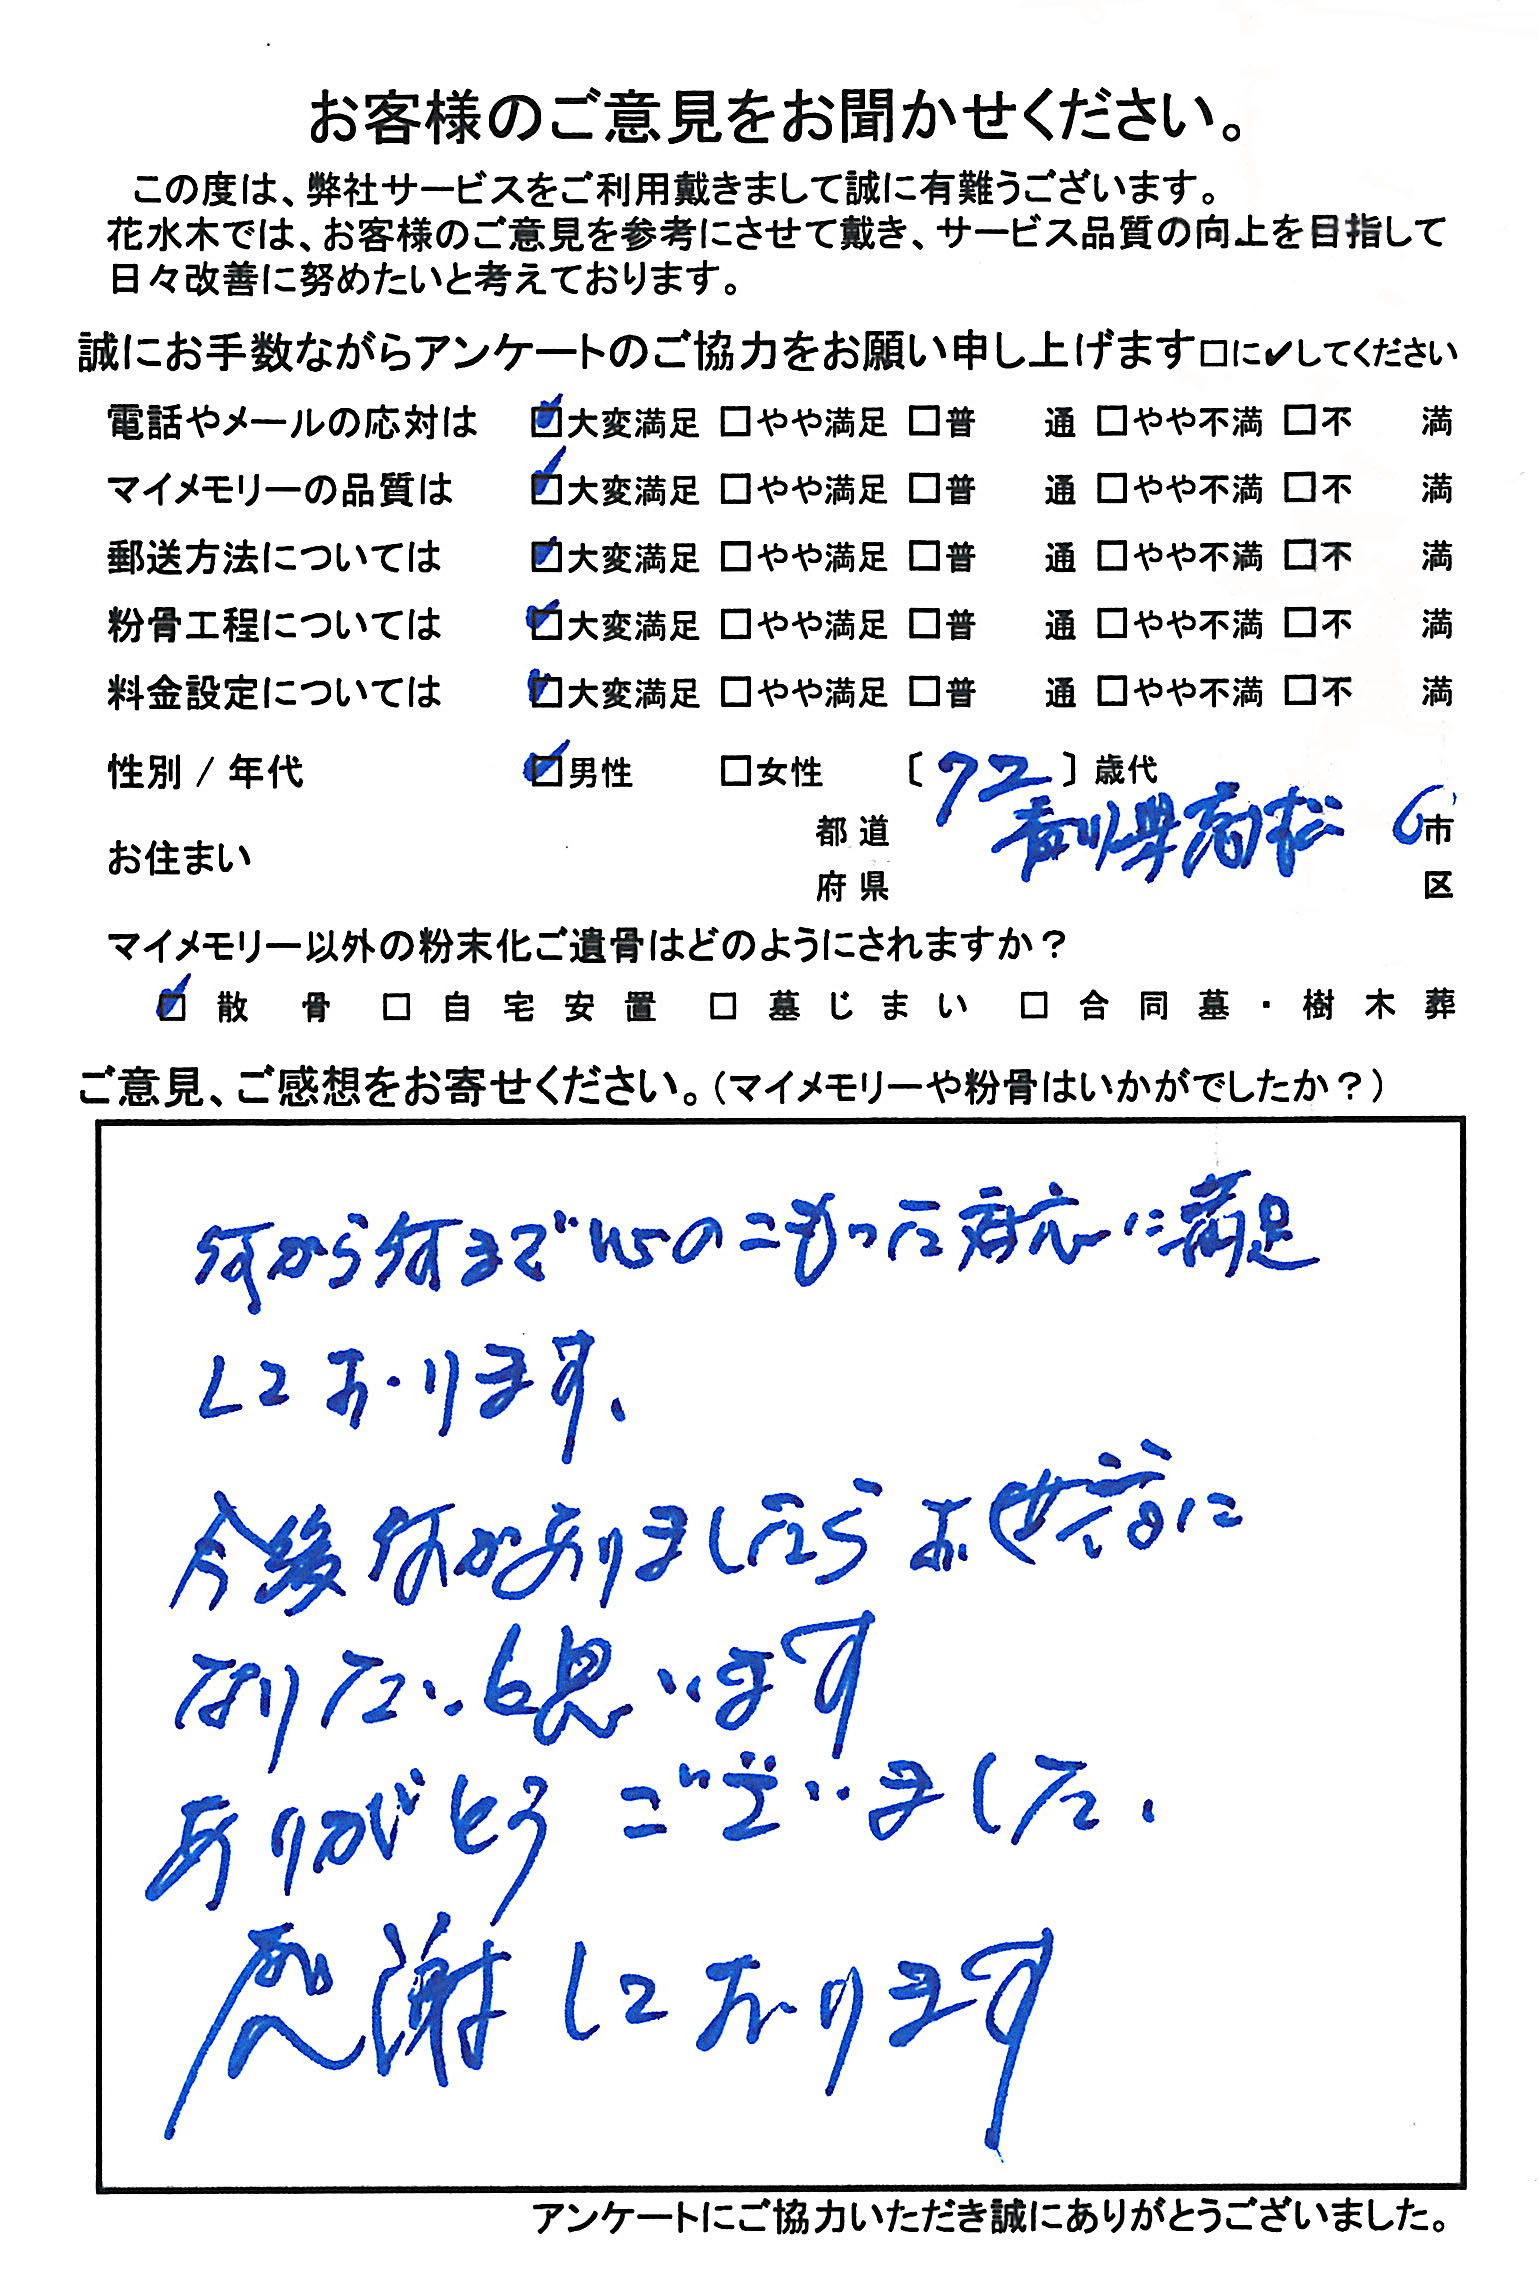 お客様のご意見をお聞かせください。
この度は、弊社サービスをご利用戴きまして誠に有難うございます。
花水木では、お客様のご意見を参考にさせて戴き、サービス品質の向上を目指して
日々改善に努めたいと考えております。
誠にお手数ながらアンケートのご協力をお願い申し上げます□に✔してください
電話やメールの応対は ☑大変満足 □やや満足 □普通 □やや不満 □不満
マイメモリーの品質は ☑大変満足 □やや満足 □普通 □やや不満 □不満
郵送方法については ☑大変満足 □やや満足 □普通 □やや不満 □不満
粉骨工程については ☑大変満足 □やや満足 □普通 □やや不満 □不満
料金設定については ☑大変満足 □やや満足 □普通 □やや不満 □不満
性別 / 年代 ☑男性 □女性 〔 72 〕歳代
お住まい 都道府県 香川県高松 市区
マイメモリー以外の粉末化ご遺骨はどのようにされますか？
☑散骨 □自宅安置 □墓じまい □合同墓・樹木葬
ご意見、ご感想をお寄せください。（マイメモリーや粉骨はいかがでしたか？）
何から何まで心のこもった対応に満足
しております、
今後何かありましたらお世話に
なりたいと思います
ありがとうございました、
感謝しております
アンケートにご協力いただき誠にありがとうございました。